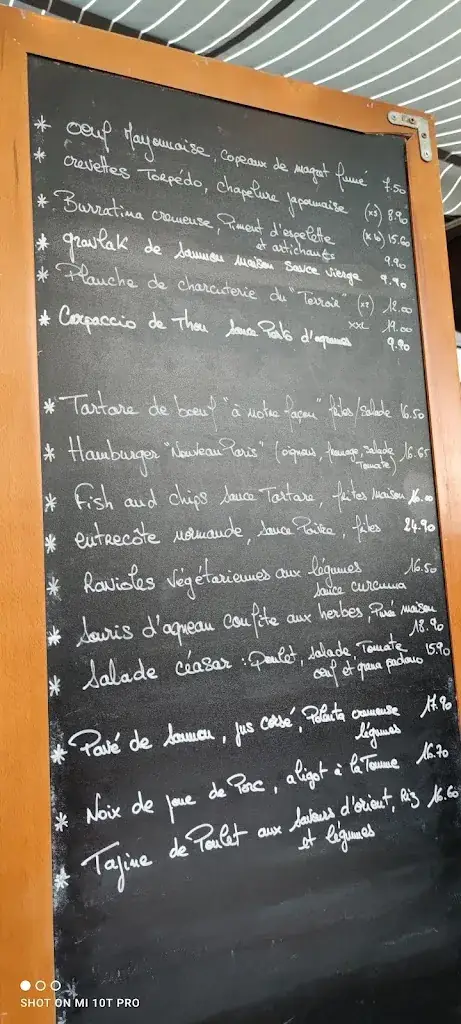 * oeuf Mayonnaise, copeaux de magret fumé 7.50
* crevettes Torpédo, chapelure japonaise (x5) 8.90
(x10) 15.60
* Burratina cremeuse, Piment d'espelette et artichauts 9.90
* gravlak de saumon maison sauce vierge 9.90
* Planche de charcuterie du "Terroir" 12.00
XXL 19.00
* Carpaccio de Thon sauce d'agrumes 9.90
* Tartare de boeuf "à notre façon" frites/salade 16.50
* Hamburger "Nouveau Paris" (oignons, fromage, salade
Tomate) 16.65
* Fish and chips sauce Tartare, frites maison 16.00
* entrecôte normande, sauce Poivre, frites 24.90
* Ravioles végétariennes aux légumes 16.50
sauce curcuma
* Souris d'agneau confite aux herbes, Purée maison
18.90
* Salade céasar : Poulet, salade, Tomate 15.90
oeuf et grana padano
* Pavé de saumon, jus corsé, Polenta cremeuse 17.90
légumes
* Noix de joue de Porc, aligot à la Tomme 16.70
* Tajine de Poulet aux saveurs d'orient, Riz 16.60
et légumes
SHOT ON MI 10T PRO